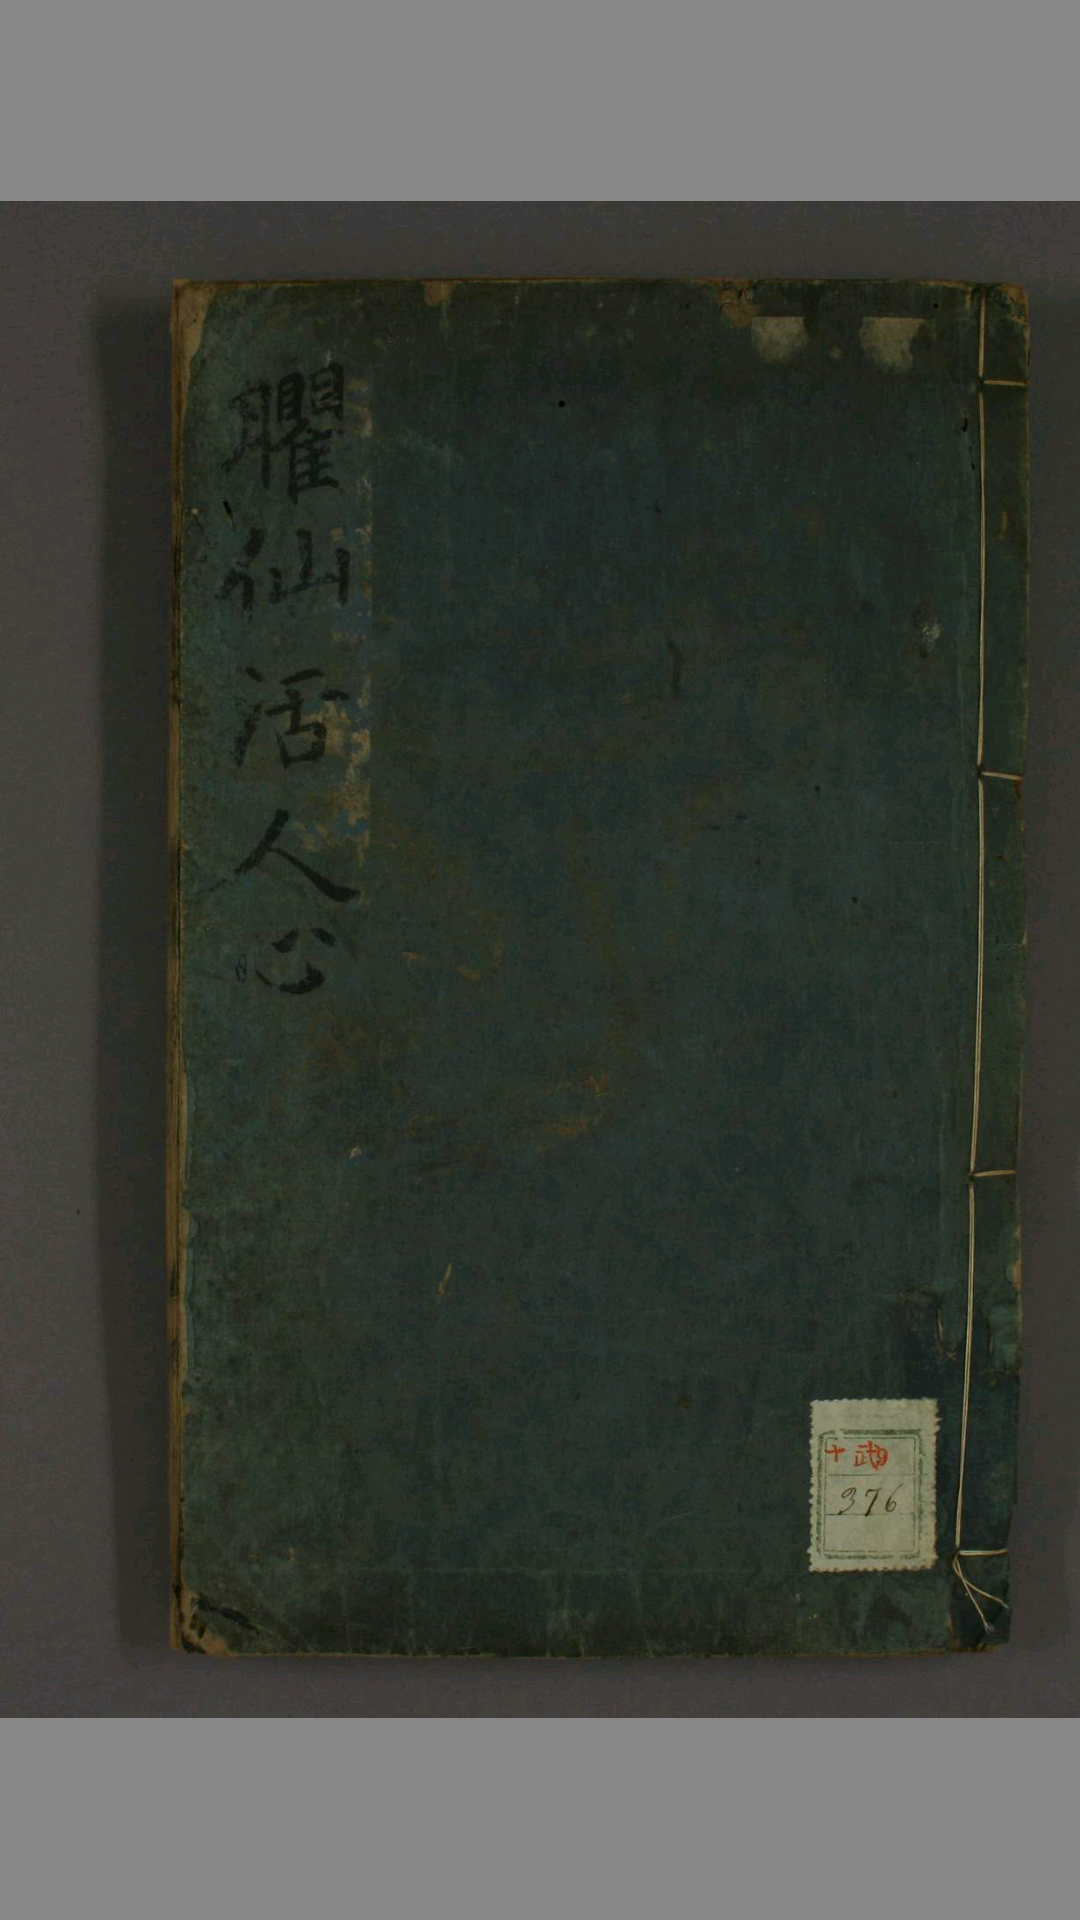 臞仙活人心
十 武
376